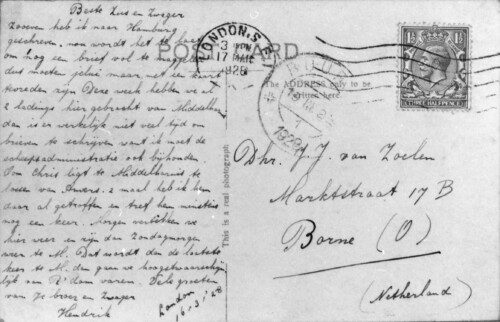 Beste Zus en Zwager
Zooeven heb ik naar Hamburg
geschreven, nu wordt het te laat
om nog een brief vol te
dus moeten jelui maar met een kaart
tevreden zijn Deze week hebben we al
2 ladings hier gebracht van Middelhar.
dan is er werkelijk niet veel tijd om
brieven te schrijven want ik moet de
scheepsadministratie ook bijhouden.
Om Chris ligt te Middelharnis te
lossen van Anvers. 2 maal heb ik hem
daar al getroffen en tref hem misschien
nog een keer. Morgen vertrekken we
hier weer en zijn dan Zondagmorgen
weer te M. Dat wordt dan de laatste
keer te M. dan gaan we hoogstwaarschijn
lijk van R'dam varen. Vele groeten
van je broer en Zwager
Hendrik
London
16-3-'28
POST CARD
LONDON. S.E.
3 PM
17 MAR
1928
The ADDRESS only to be
written here.
This is a real photograph
POSTAGE
THREE HALFPENCE
Dhr. J. J. van Zoelen
Marktstraat 17 B
Borne (O)
(Netherland)